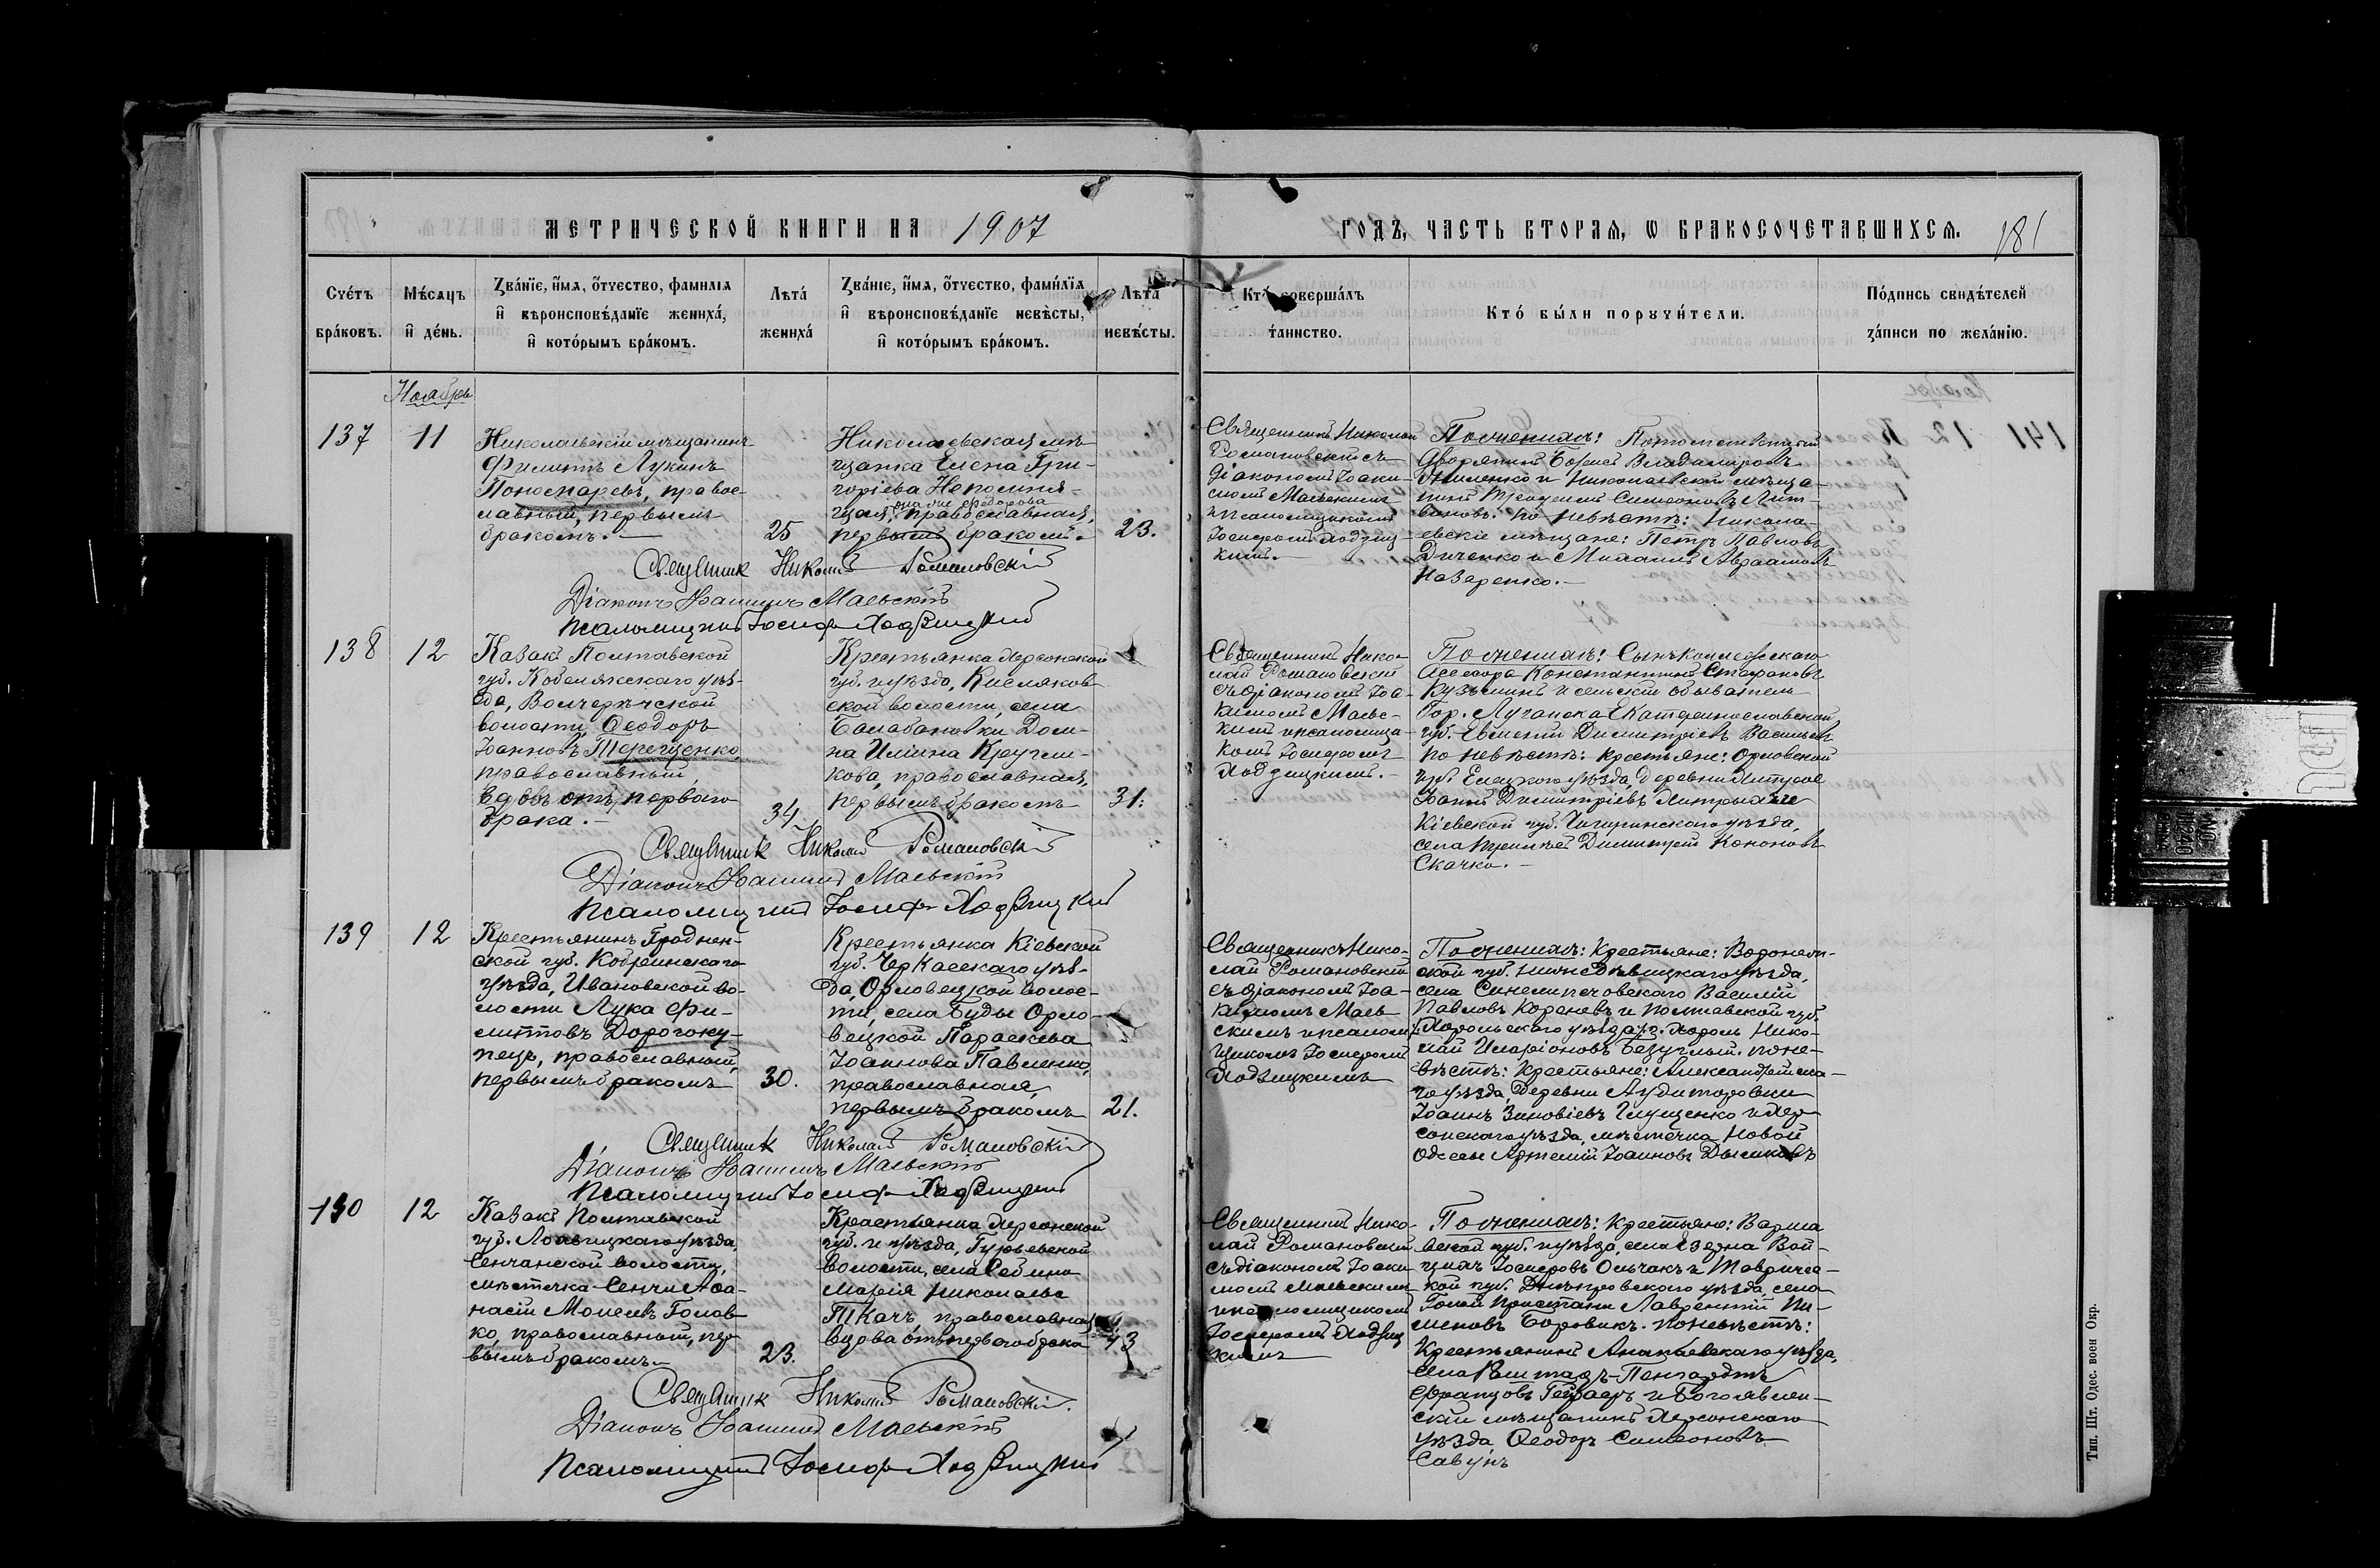 МЕТРИЧЕСКОЙ КНИГИ НА 1907
ГОДЪ, ЧАСТЬ ВТОРАЯ, Ѡ БРАКОСОЧЕТАВШИХСЯ. 181
Счетъ браковъ.
Мѣсяцъ и день.
Званіе, имя, отчество, фамилія
и вѣроисповѣданіе жениха,
и которымъ бракомъ.
Лѣта
жениха
Званіе, имя, отчество, фамилія
и вѣроисповѣданіе невѣсты,
и которымъ бракомъ.
Лѣта
невѣсты.
Кто совершалъ
таинство.
Кто были поручители.
Подпись свидѣтелей
записи по желанію.
Ноябрь
137
11
Николаевскій мѣщанинъ
Филиппъ Лукинъ
Пономаревъ, правос-
лавный, первымъ
бракомъ.
25
Николаевская мѣ-
щанка Елена Гри-
горіева Непомня-
она же Федорова
щая, православная,
первымъ бракомъ.
23.
Священникъ Николай
Романовскій съ
діакономъ Іоаки-
момъ Маевскимъ
и псаломщикомъ
Іосифомъ Ходзиц-
кимъ.
По женихѣ: Потомственный
дворянинъ Борисъ Владиміровъ
и Николаевскій мѣща-
нинъ Симеоновъ Лит-
виновъ. По невѣстѣ: Никола-
евскіе мѣщане: Петръ Павловъ
Диченко и Михаилъ Авраамовъ
Назаренко.
Священникъ Николай Романовскій
Діаконъ Іоакимъ Маевскій
Псаломщикъ Іосифъ Ходзицкій
138
12
Казакъ Полтавской
губ. Кобелякскаго уѣз-
да,
волости, Ѳеодоръ
Іоанновъ Терещенко,
православный,
вдовъ отъ перваго
брака.
34
Крестьянка Херсонской
губ. и уѣзда, Кисляков-
ской волости, села
Балабановки Дом-
на Ильина Кручи-
кова, православная,
первымъ бракомъ
31.
Священникъ Нико-
лай Романовскій
съ діакономъ Іоа-
кимомъ Маевс-
кимъ и псаломщи-
комъ Іосифомъ
Ходзицкимъ.
По женихѣ: Сынъ Коллежскаго
Асессора Константинъ Стефановъ
Кузьминъ и сельскій обыватель
гор. Луганска Екатеринославской
губ. Евменій Димитріевъ Васильевъ
по невѣстѣ: крестьяне: Орловской
губ. Елецкаго уѣзда, деревни
Іоаннъ Димитріевъ
Кіевской губ. Чигиринскаго уѣзда,
села Димитрій Кононовъ
Скачко.
Священникъ Николай Романовскій
Діаконъ Іоакимъ Маевскій
Псаломщикъ Іосифъ Ходзицкій
139
12
Крестьянинъ Гроднен-
ской губ. Кобринскаго
уѣзда, Ивановской во-
лости Лука Фи-
липповъ Дорогоку-
пецъ, православный,
первымъ бракомъ
30.
Крестьянка Кіевской
губ. Черкасскаго уѣз-
да, Орловецкой волос-
ти, села Буды Орло-
вецкой Параскева
Іоаннова Павленко,
православная,
первымъ бракомъ
21.
Священникъ Нико-
лай Романовскій
съ діакономъ Іоа-
кимомъ Маев-
скимъ и псалом-
щикомъ Іосифомъ
Ходзицкимъ
По женихѣ: крестьяне: Воронеж-
ской губ. Нижнедѣвицкаго уѣзда,
села Синелипяговскаго Василій
Павловъ Кореневъ и Полтавской губ.
Хорольскаго уѣзда, г. Хоролъ Нико-
лай Иларіоновъ Безуглый. по не-
вѣстѣ: крестьяне: Александрійска-
го уѣзда, деревни Аудиторовки
Іоаннъ Зиновіевъ Глущенко и Хер-
сонскаго уѣзда, мѣстечка Новой
Одессы Артемій Іоанновъ
Священникъ Николай Романовскій
Діаконъ Іоакимъ Маевскій
Псаломщикъ Іосифъ Ходзицкій
140
12
Казакъ Полтавской
губ. Лохвицкаго уѣзда,
Сенчанской волости,
мѣстечка Сенчи Аѳа-
насій Моисеевъ Голов-
ко, православный, пер-
вымъ бракомъ.
23.
Крестьянка Херсонской
губ. и уѣзда, Гурьевской
волости, села Себино
Марія Николаева
Ткачъ, православная,
вдова отъ перваго брака
43
Священникъ Нико-
лай Романовскій
съ діакономъ Іоаки-
момъ Маевскимъ
и псаломщикомъ
Іосифомъ Ходзиц-
кимъ
По женихѣ: крестьяне: Варша-
вской губ. и уѣзда, села Езерна Вой-
цехъ Іосифовъ Ольчакъ и Тавричес-
кой губ. Днѣпровскаго уѣзда, села
Голой Пристани Лаврентій Пи-
меновъ Боровикъ. По невѣстѣ:
Крестьянинъ Ананьевскаго уѣзда,
села
Францовъ и Богоявлен-
скій мѣщанинъ Херсонскаго
уѣзда Ѳеодоръ Симеоновъ
Савунъ
Священникъ Николай Романовскій.
Діаконъ Іоакимъ Маевскій
Псаломщикъ Іосифъ Ходзицкій
Тип. Шт. Одес. воен Окр.